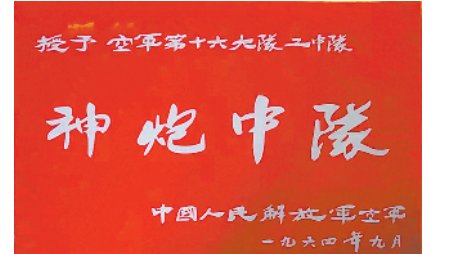 授予 空軍第十六大隊二中隊
神炮中隊
中國人民解放軍空軍
一九六四年九月